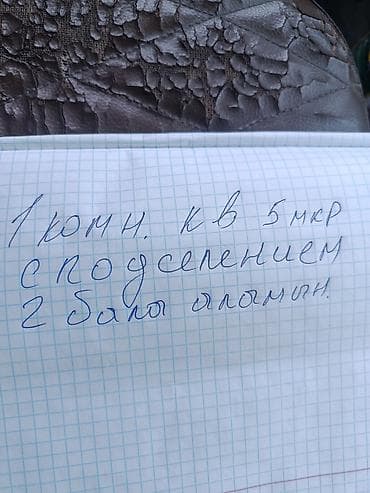 1 комн. кв 5 мкр
с подселением
2 бала аламын.